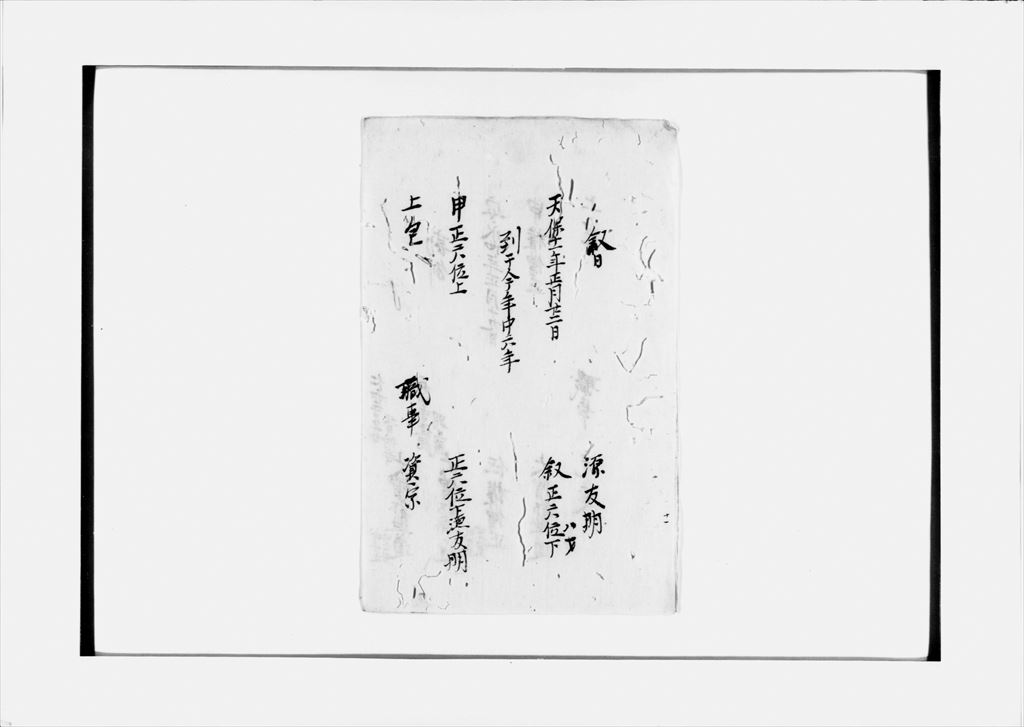 叙日 源友明
天保十一年正月廿二日 叙正六位下
到于今年中六年
申正六位上 正六位下源友明
上包 職事 資宗